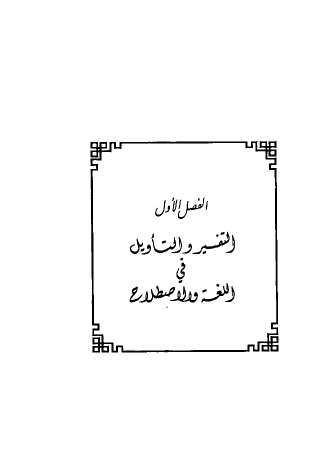 الفصل الأول
التفسير والتأويل
في
اللغة والاصطلاح